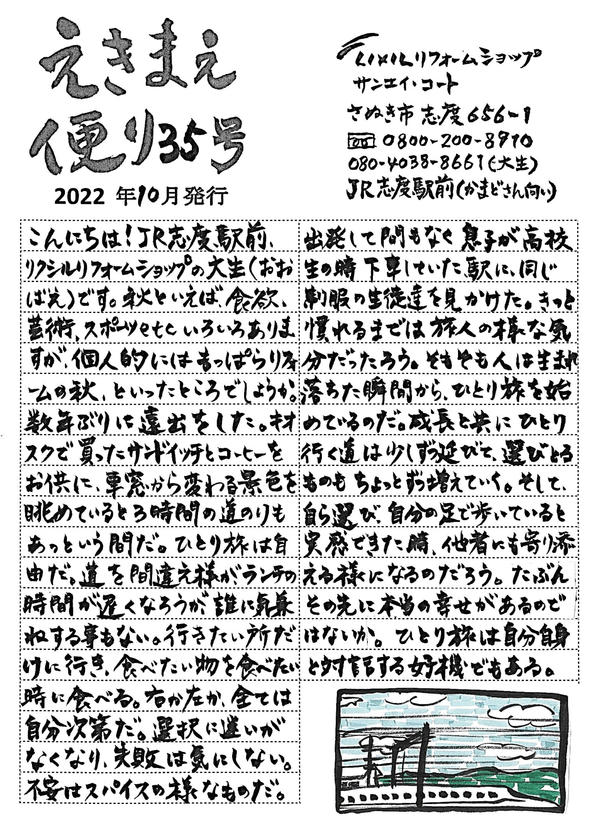 えきまえ
便り35号
2022 年10月発行
LIXILリフォームショップ
サンエイ・コート
さぬき市 志度656-1
0800-200-8910
080-4038-8661(大生)
JR志度駅前(かまどさん向い)
こんにちは!JR志度駅前、
リクシルリフォームショップの大生(おお
ばえ)です。秋といえば、食欲、
芸術、スポーツetc いろいろありま
すが、個人的にはもっぱらリフォ
ームの秋、といったところでしょうか。
数年ぶりに遠出をした。キオ
スクで買ったサンドイッチとコーヒーを
お供に、車窓から変わる景色を
眺めていると3時間の道のりも
あっという間だ。ひとり旅は自
由だ。道を間違え様がランチの
時間が遅くなろうが誰に気兼
ねする事もない。行きたい所だ
けに行き、食べたい物を食べたい
時に食べる。右か左か、全ては
自分次第だ。選択に迷いが
なくなり、失敗は気にしない。
不安はスパイスの様なものだ。
出発して間もなく息子が高校
生の時下車していた駅に、同じ
制服の生徒達を見かけた。きっと
慣れるまでは旅人の様な気
分だったろう。そもそも人は生まれ
落ちた瞬間から、ひとり旅を始
めているのだ。成長と共にひとり
行く道は少しずつ延びて、選びとる
ものもちょっとずつ増えていく。そして、
自ら選び、自分の足で歩いていると
実感できた時、他者にも寄り添
える様になるのだろう。たぶん
その先に本当の幸せがあるので
はないか。ひとり旅は自分自身
と対話する好機でもある。